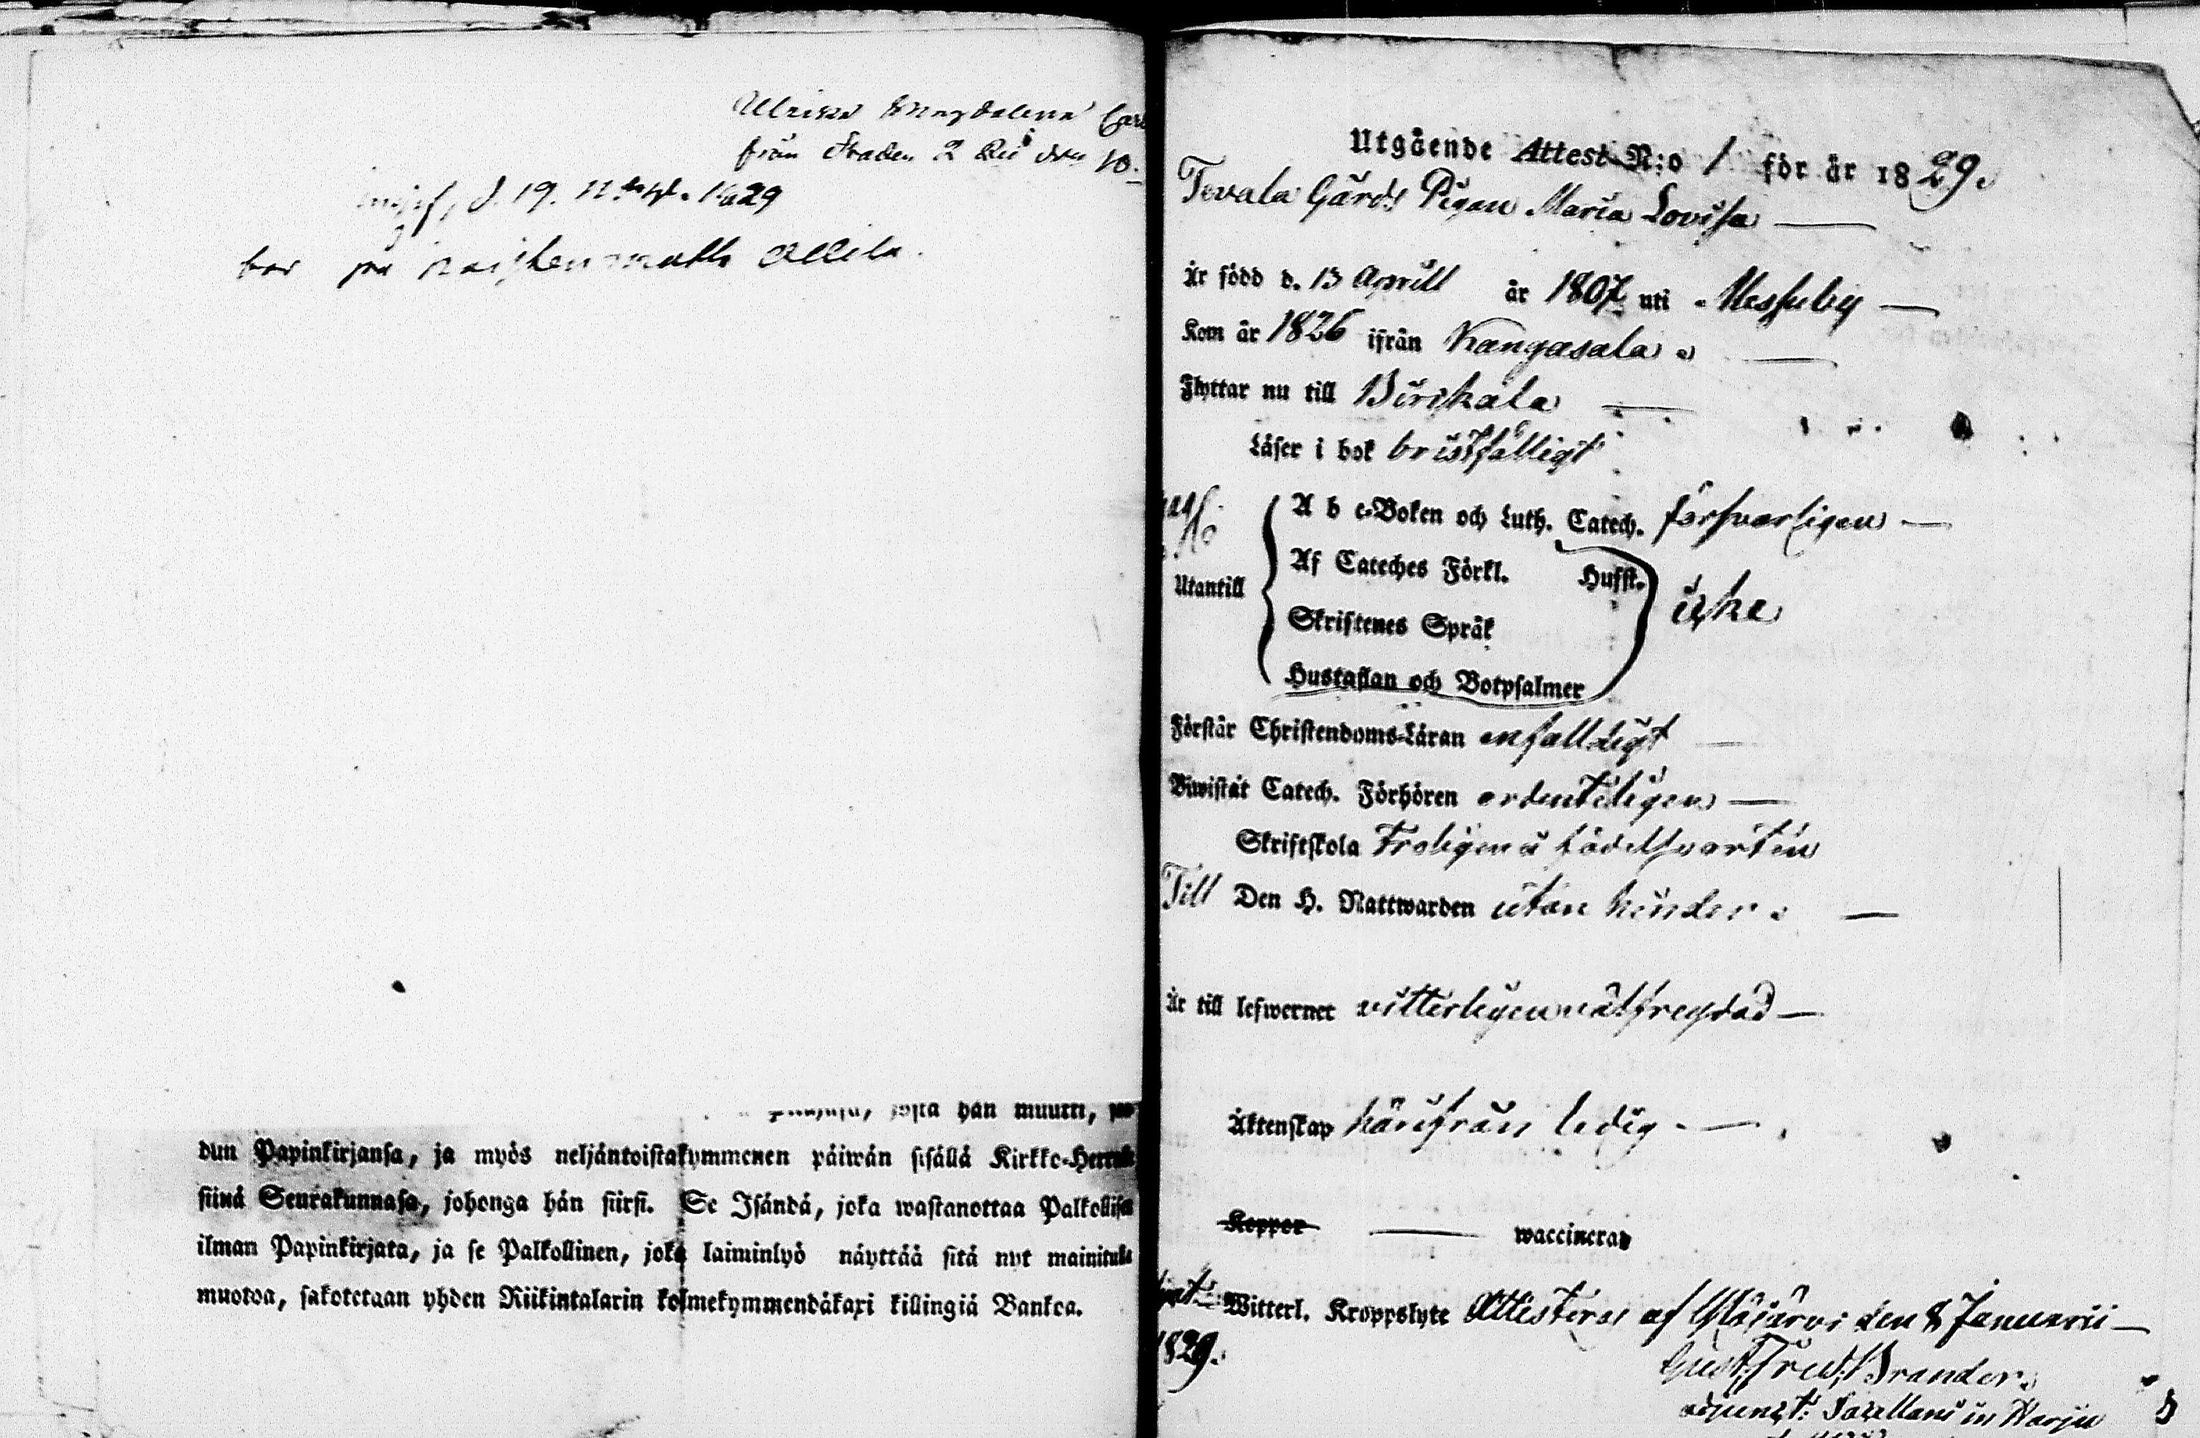 Ulrika Magdalena
från Staden 2
d. 19. 1829
bor på
hän muutti,
dun Papinkirjansa, ja myös neljäntoistakymmenen päiwän sisällä Kirkko-Herralle
siinä Seurakunnasa, johonga hän siirsi. Se Isändä, joka wastanottaa Palkollisen
ilman Papinkirjata, ja se Palkollinen, joka laiminlyö näyttää sitä nyt mainitulla
muotoa, sakotetaan yhden Riikintalarin kolmekymmendäkaxi killingiä Bankoa.
Utgående Attest N:o 1 för år 1829.
Tevala Gårds Pigan Maria Lovisa
Är född d. 13 Aprill år 1807 uti Messuby
Kom år 1826 ifrån Kangasala
Flyttar nu till Birkala
Läser i bok bristfälligt
A b c-Boken och Luth. Catech. försvarligen
Af Cateches Förkl. Hufst.
Utantill
Skriftenes Språk
icke
Hustaflan och Botpsalmer
Förstår Christendoms-Läran enfalldigt
Biwistat Catech. Förhören ordenteligen
Skriftskola Troligen i födelseorten
Till Den H. Nattwarden utan hinder
Är till lefwernet vitterligen oåtfregdad
Äktenskap härifrån ledig
Koppor waccinerad
Witterl. Kroppslyte Attesteras af Ylöjärvi den 8 Januarii
1829.
Gust. Fred. Brander.
adjunct: Sacellani in Harju